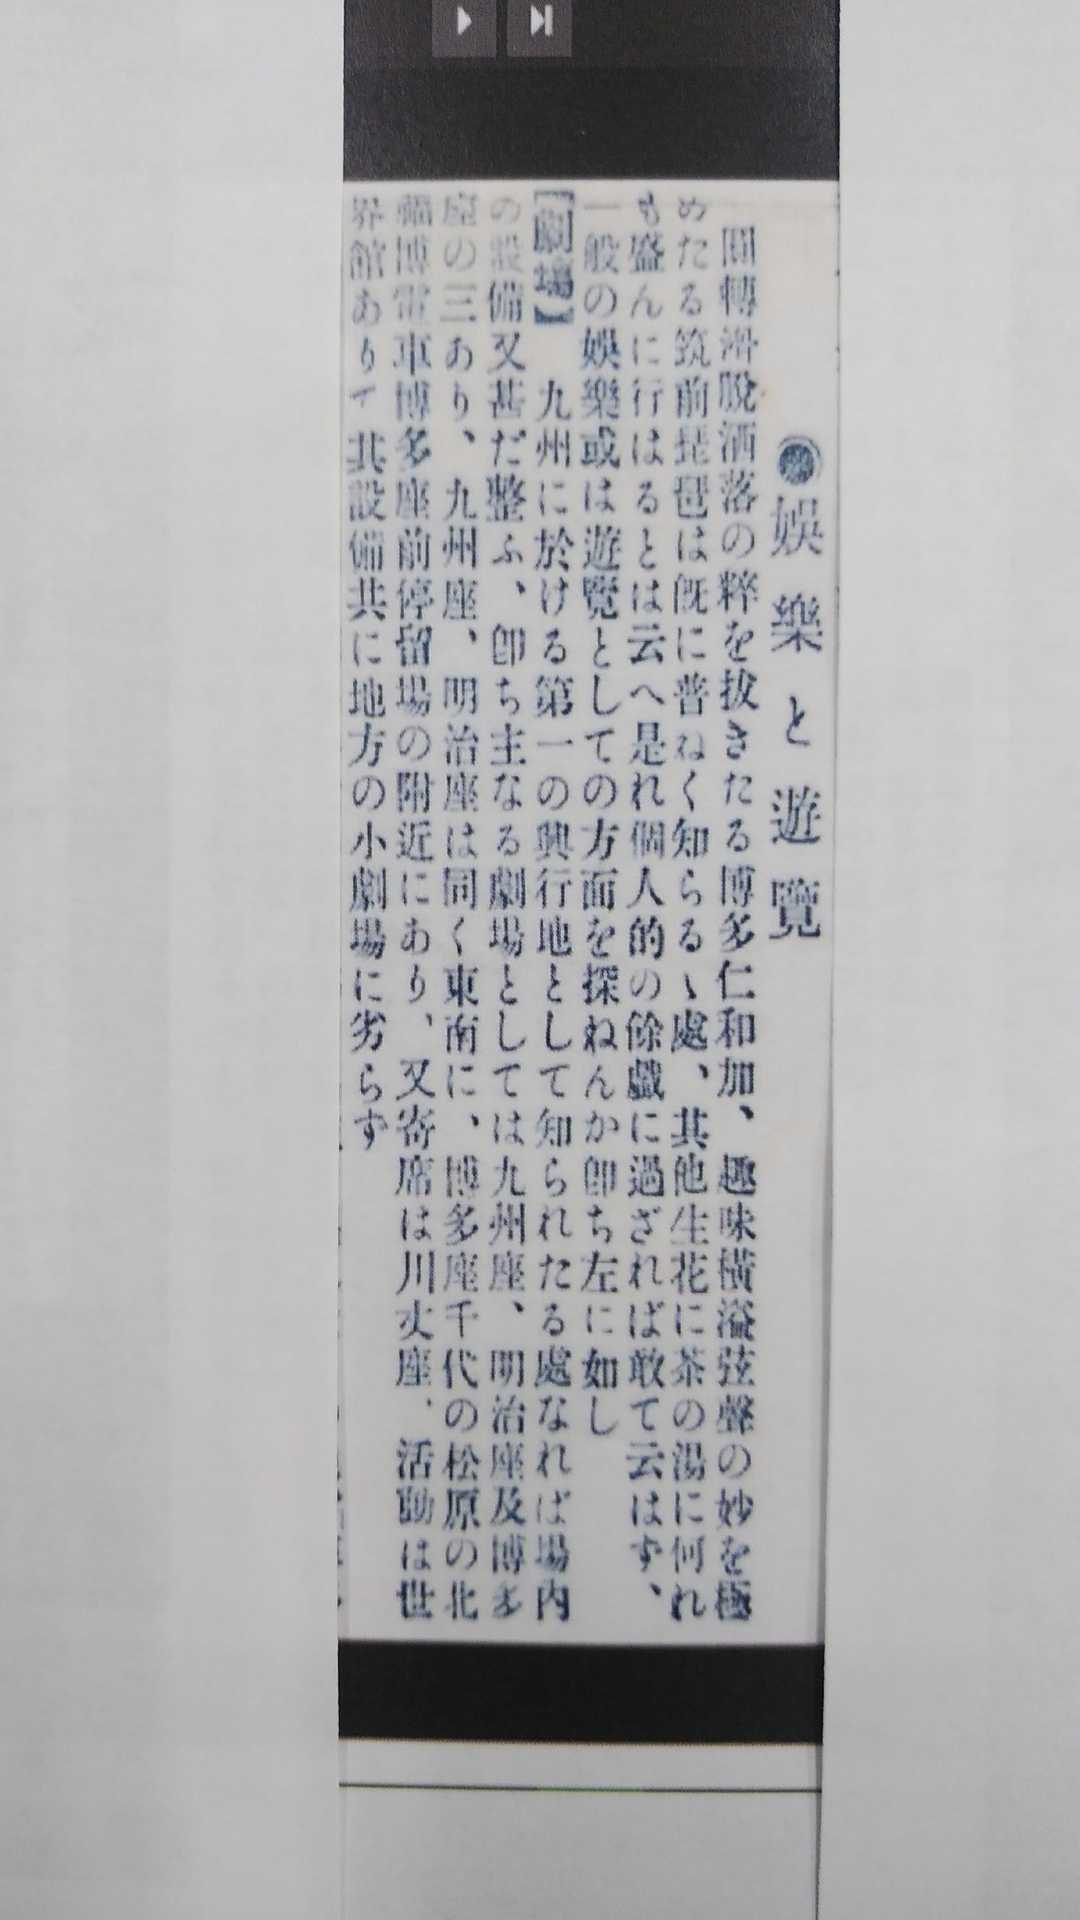 ◉娯樂と遊覽
圓轉滑脫洒落の粹を拔きたる博多仁和加、趣味橫溢弦聲の妙を極
めたる筑前琵琶は旣に普ねく知らるゝ處、其他生花に茶の湯に何れ
も盛んに行はるとは云へ是れ個人的の餘戲に過ざれば敢て云はず、
一般の娯樂或は遊覽としての方面を探ねんか卽ち左に如し
【劇場】 九州に於ける第一の興行地として知られたる處なれば場內
の設備又甚だ整ふ、卽ち主なる劇場としては九州座、明治座及博多
座の三あり、九州座、明治座は同く東南に、博多座千代の松原の北
福博電車博多座前停留場の附近にあり、又寄席は川丈座、活動は世
界館ありて其設備共に地方の小劇場に劣らず